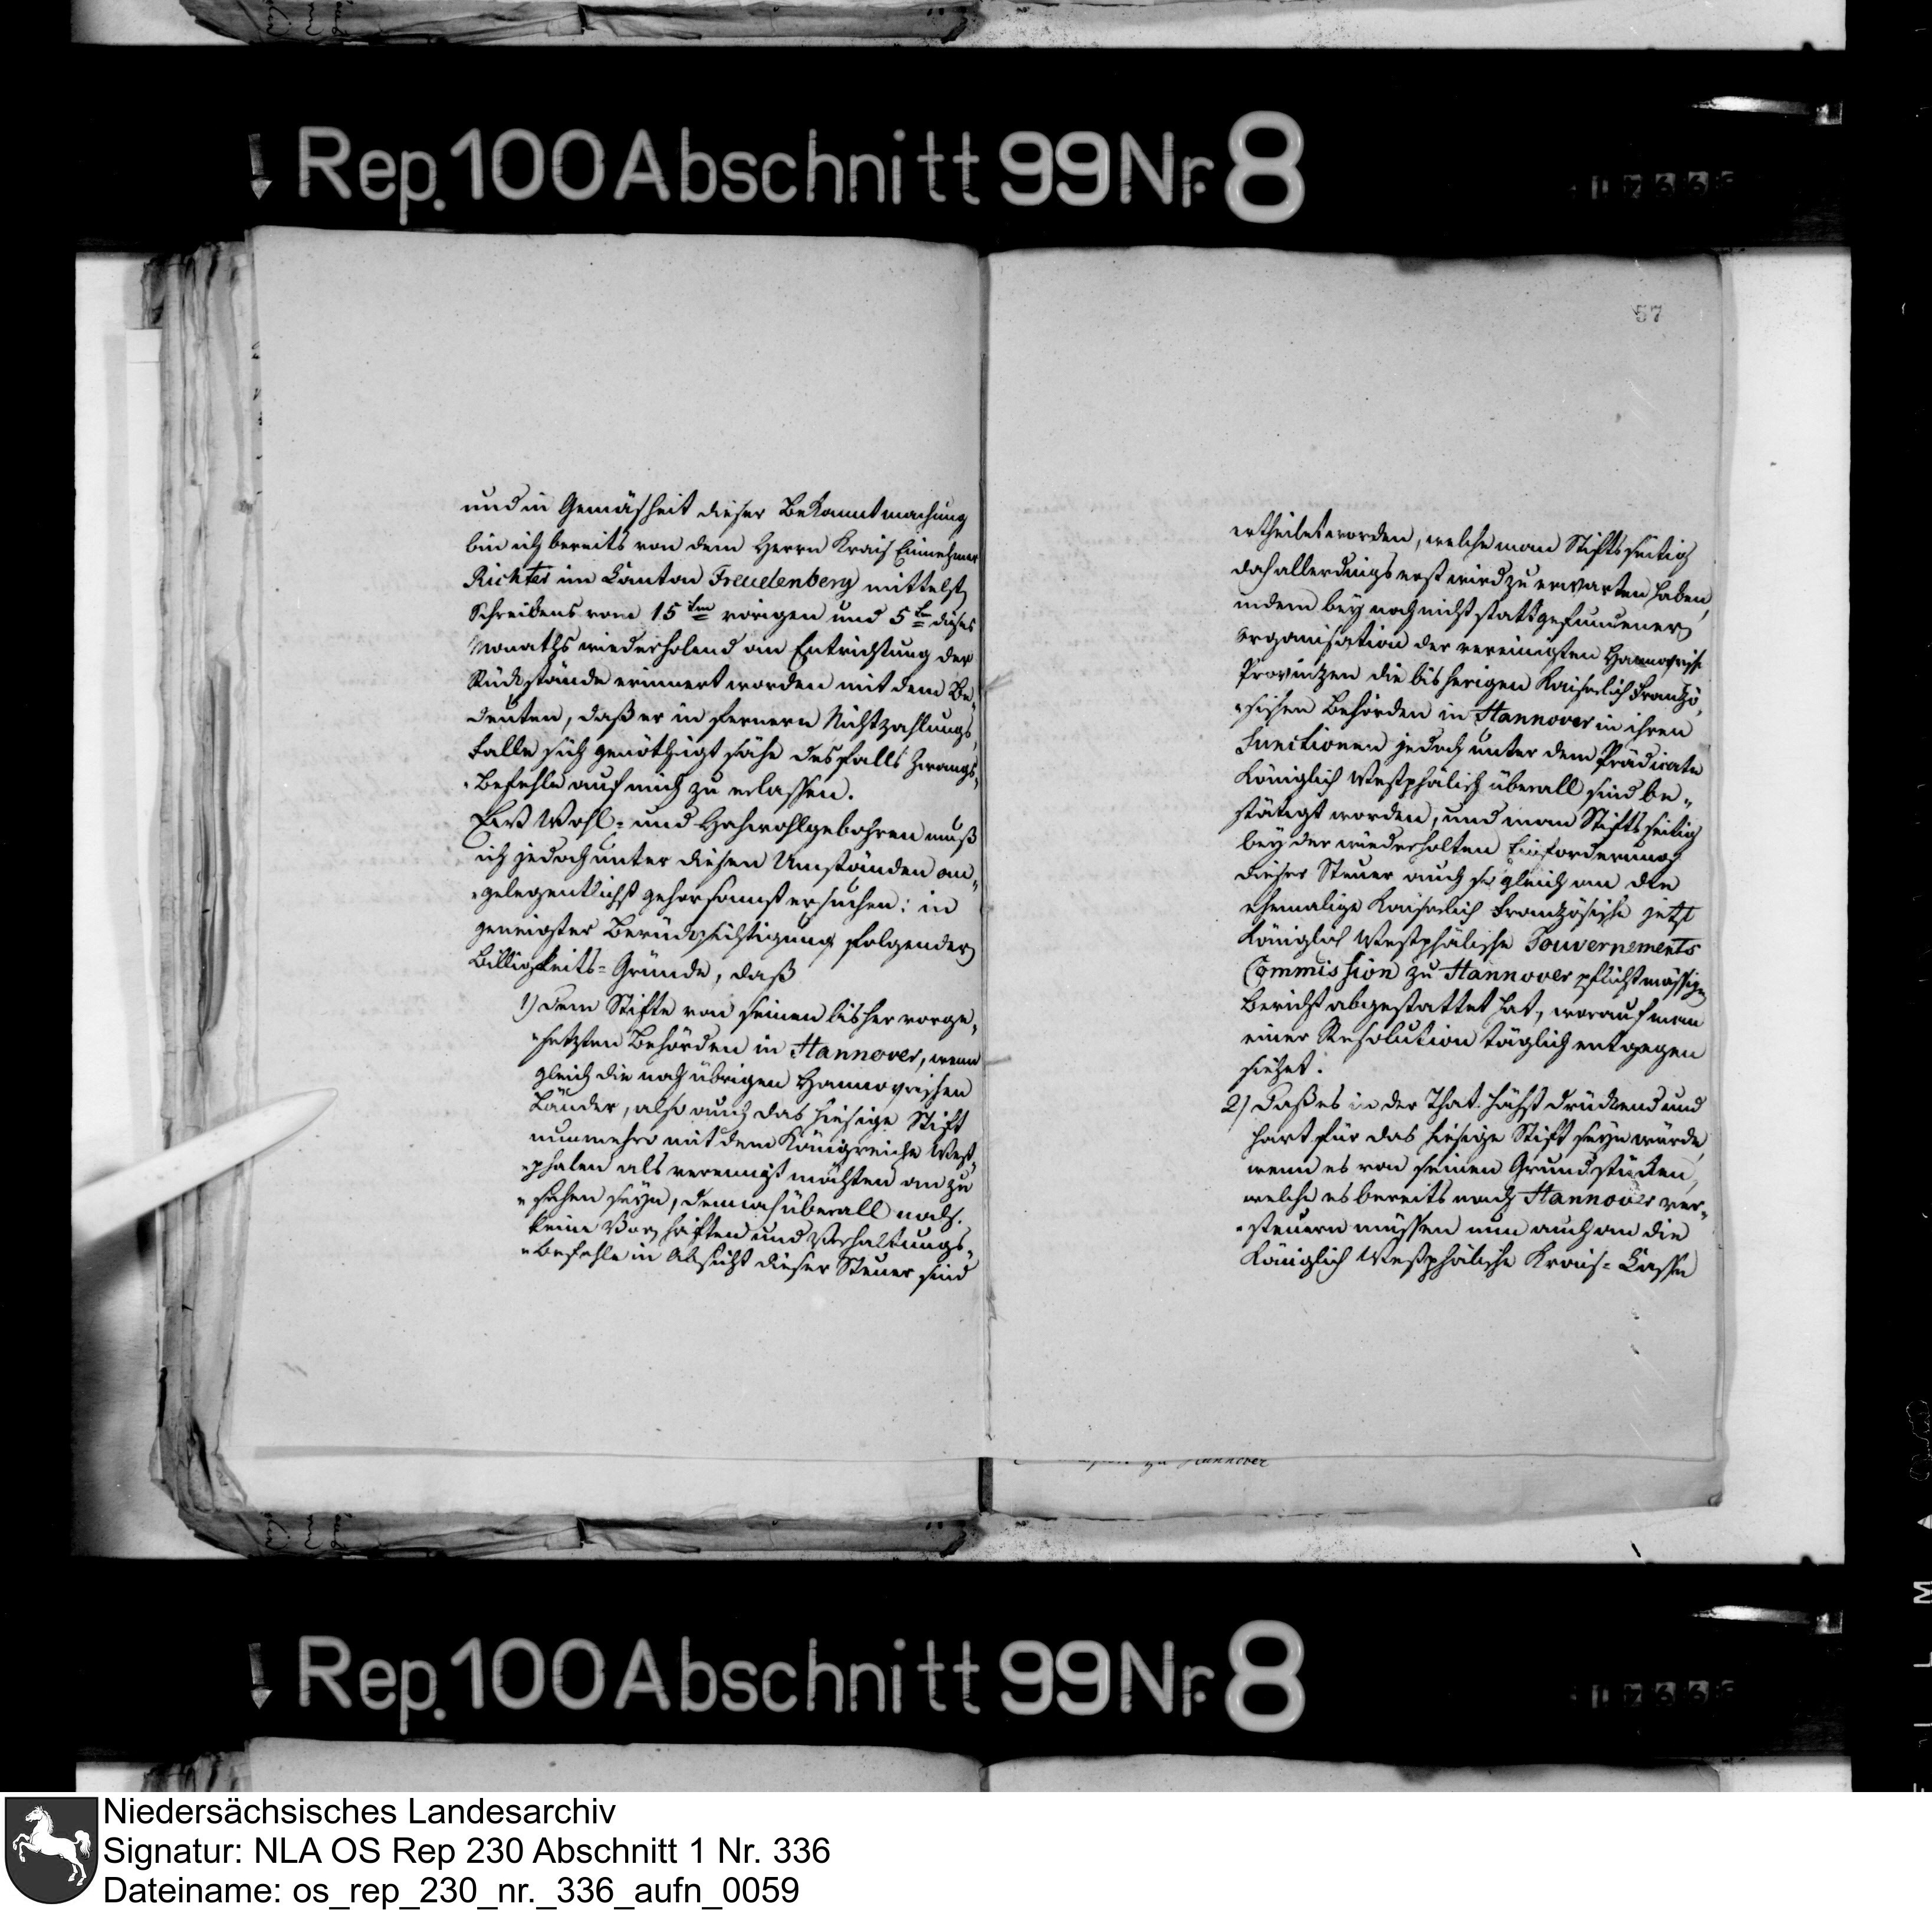 Rep. 100 Abschnitt 99 Nr. 8
und in Gemäsheit dieser Bekanntmachung
bin ich bereits von dem Herrn Krais Einnehmer
Richter im Canton Freudenberg mittelst
Schreibens vom 15ten vorigen und 5ten dieses
Monaths wiederholend an Entrichtung der
Rückstände erinnert worden mit dem Be„
deuten, daß er in fernern Nichtzahlungs„
falle sich genöthigt sähe desfalls Zwangs„
„Befehle auf mich zu erlassen.
Ew Wohl- und Hochwohlgebohren muß
ich jedoch unter diesen Umständen an„
„gelegentlichst gehorsamst ersuchen: in
geneigter Berücksichtigung folgender
Billigkeits-Gründe, daß
1) dem Stifte von seinen bisher vorge„
„setzten Behörden in Hannover, wenn
gleich die noch übrigen Hannovrischen
Länder, also auch das hiesige Stift
nunmehro mit dem Königreiche West„
„phalen als vereinigt möchten anzu„
„sehen seyn, demnach überall noch
keine Vorschriften und Verhaltungs„
„Befehle in Absicht dieser Steuer sind
57
ertheilet worden, welche man Stiftsseitig
doch allerdings erst wird zu erwarten haben,
indem bey noch nicht stattgefundener
Organisation der vereinigten Hannovrisch
Provintzen die bisherigen Kaiserlich Franzö„
„sischen Behörden in Hannover in ihren
Functionen jedoch unter dem Prädicate
Königlich Westphälisch überall sind be„
stätigt worden, und man Stiftsseitig
bey der wiederholten Einforderung
dieser Steuer auch sogleich an die
ehemalige Kaiserlich Französische jetzt
Königlich Westphälische Gouvernements
Commission zu Hannover pflichtmässig
Bericht abgestattet hat, worauf man
einer Resolution täglich entgegen
siehet.
2) Daß es in der That höchst drückend und
hart für das hiesige Stift seyn würde,
wenn es von seinen Grundstücken,
welche es bereits nach Hannover ver„
„steuern müssen nun auch an die
Königlich Westphälische Krais-Casse
zu Hannover
Rep. 100 Abschnitt 99 Nr. 8
Niedersächsisches Landesarchiv
Signatur: NLA OS Rep 230 Abschnitt 1 Nr. 336
Dateiname: os_rep_230_nr._336_aufn_0059